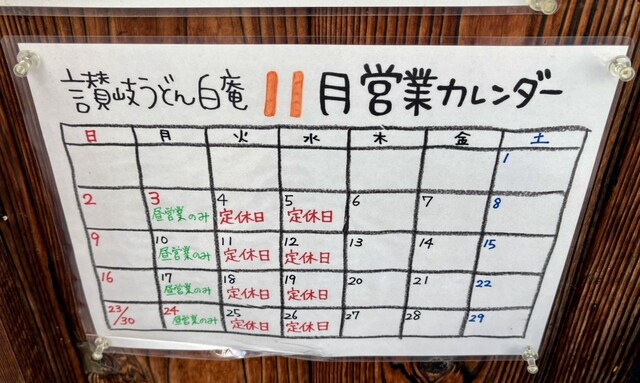 讃岐うどん白庵 11月営業カレンダー
日 月 火 水 木 金 土
1
2 3 4 5 6 7 8
昼営業のみ 定休日 定休日
9 10 11 12 13 14 15
昼営業のみ 定休日 定休日
16 17 18 19 20 21 22
昼営業のみ 定休日 定休日
23/30 24 25 26 27 28 29
昼営業のみ 定休日 定休日